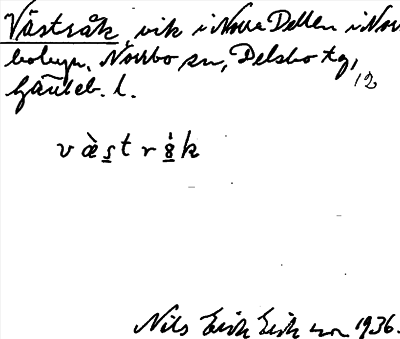 Västråk, vik i Norra Dellen i Nor
bobyn, Norrbo sn, Delsbo tg,
Gävleb. l. 12
v æ̀ s t r å k
Nils Erik Eriksson 1936.